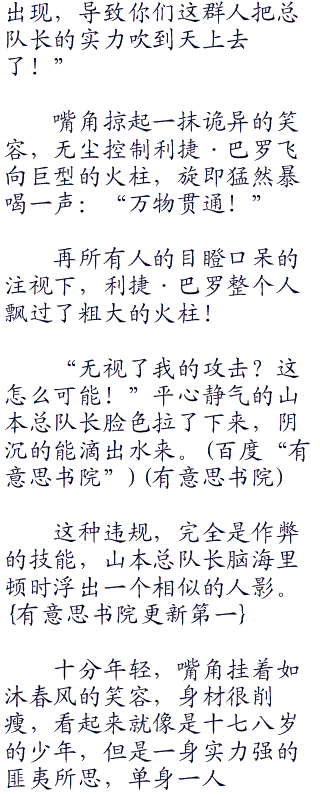 出现，导致你们这群人把总
队长的实力吹到天上去
了！”
嘴角掠起一抹诡异的笑
容，无尘控制利捷·巴罗飞
向巨型的火柱，旋即猛然暴
喝一声：“万物贯通！”
再所有人的目瞪口呆的
注视下，利捷·巴罗整个人
飘过了粗大的火柱！
“无视了我的攻击？这
怎么可能！”平心静气的山
本总队长脸色拉了下来，阴
沉的能滴出水来。(百度“有
意思书院”)(有意思书院)
这种违规，完全是作弊
的技能，山本总队长脑海里
顿时浮出一个相似的人影。
{有意思书院更新第一}
十分年轻，嘴角挂着如
沐春风的笑容，身材很削
瘦，看起来就像是十七八岁
的少年，但是一身实力强的
匪夷所思，单身一人